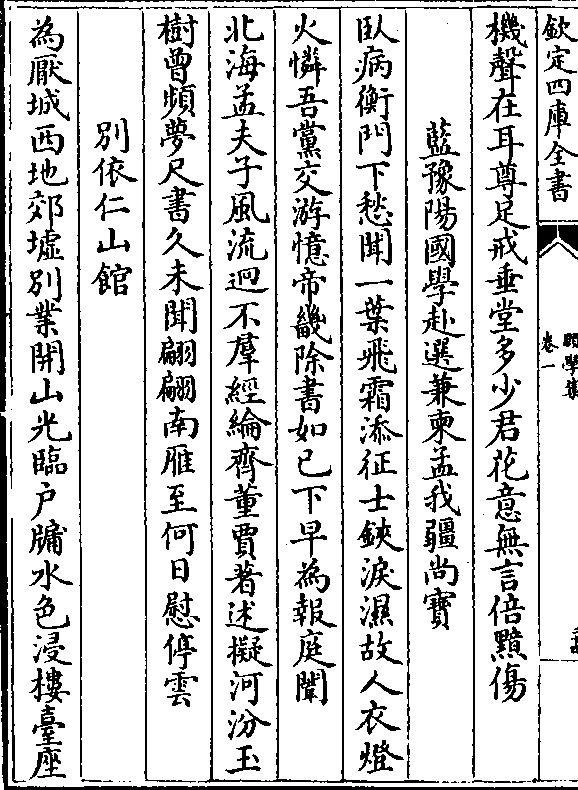 欽定四庫全書
卷一
機聲在耳尊足戒垂堂多少君花意無言倍黯傷
藍豫陽國學赴選兼柬孟我疆尚寶
臥病衡門下愁聞一葉飛霜添征士鋏淚濕故人衣燈
火憐吾黨交游憶帝畿除書如已下早為報庭闈
北海孟夫子風流迥不羣經綸齊董賈著述擬河汾玉
樹曾頻夢尺書久未聞翩翩南雁至何日慰停雲
別依仁山館
為厭城西地郊墟別業開山光臨戶牖水色浸樓臺座